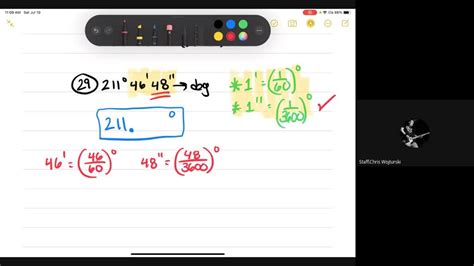 11:09 AM Sat Jul 18
㉙ 211° 46' 48" → deg
* 1' = (1/60)°
* 1" = (1/3600)° ✓
211. °
46' = (46/60)° 48" = (48/3600)°
Staff.Chris Wojturski